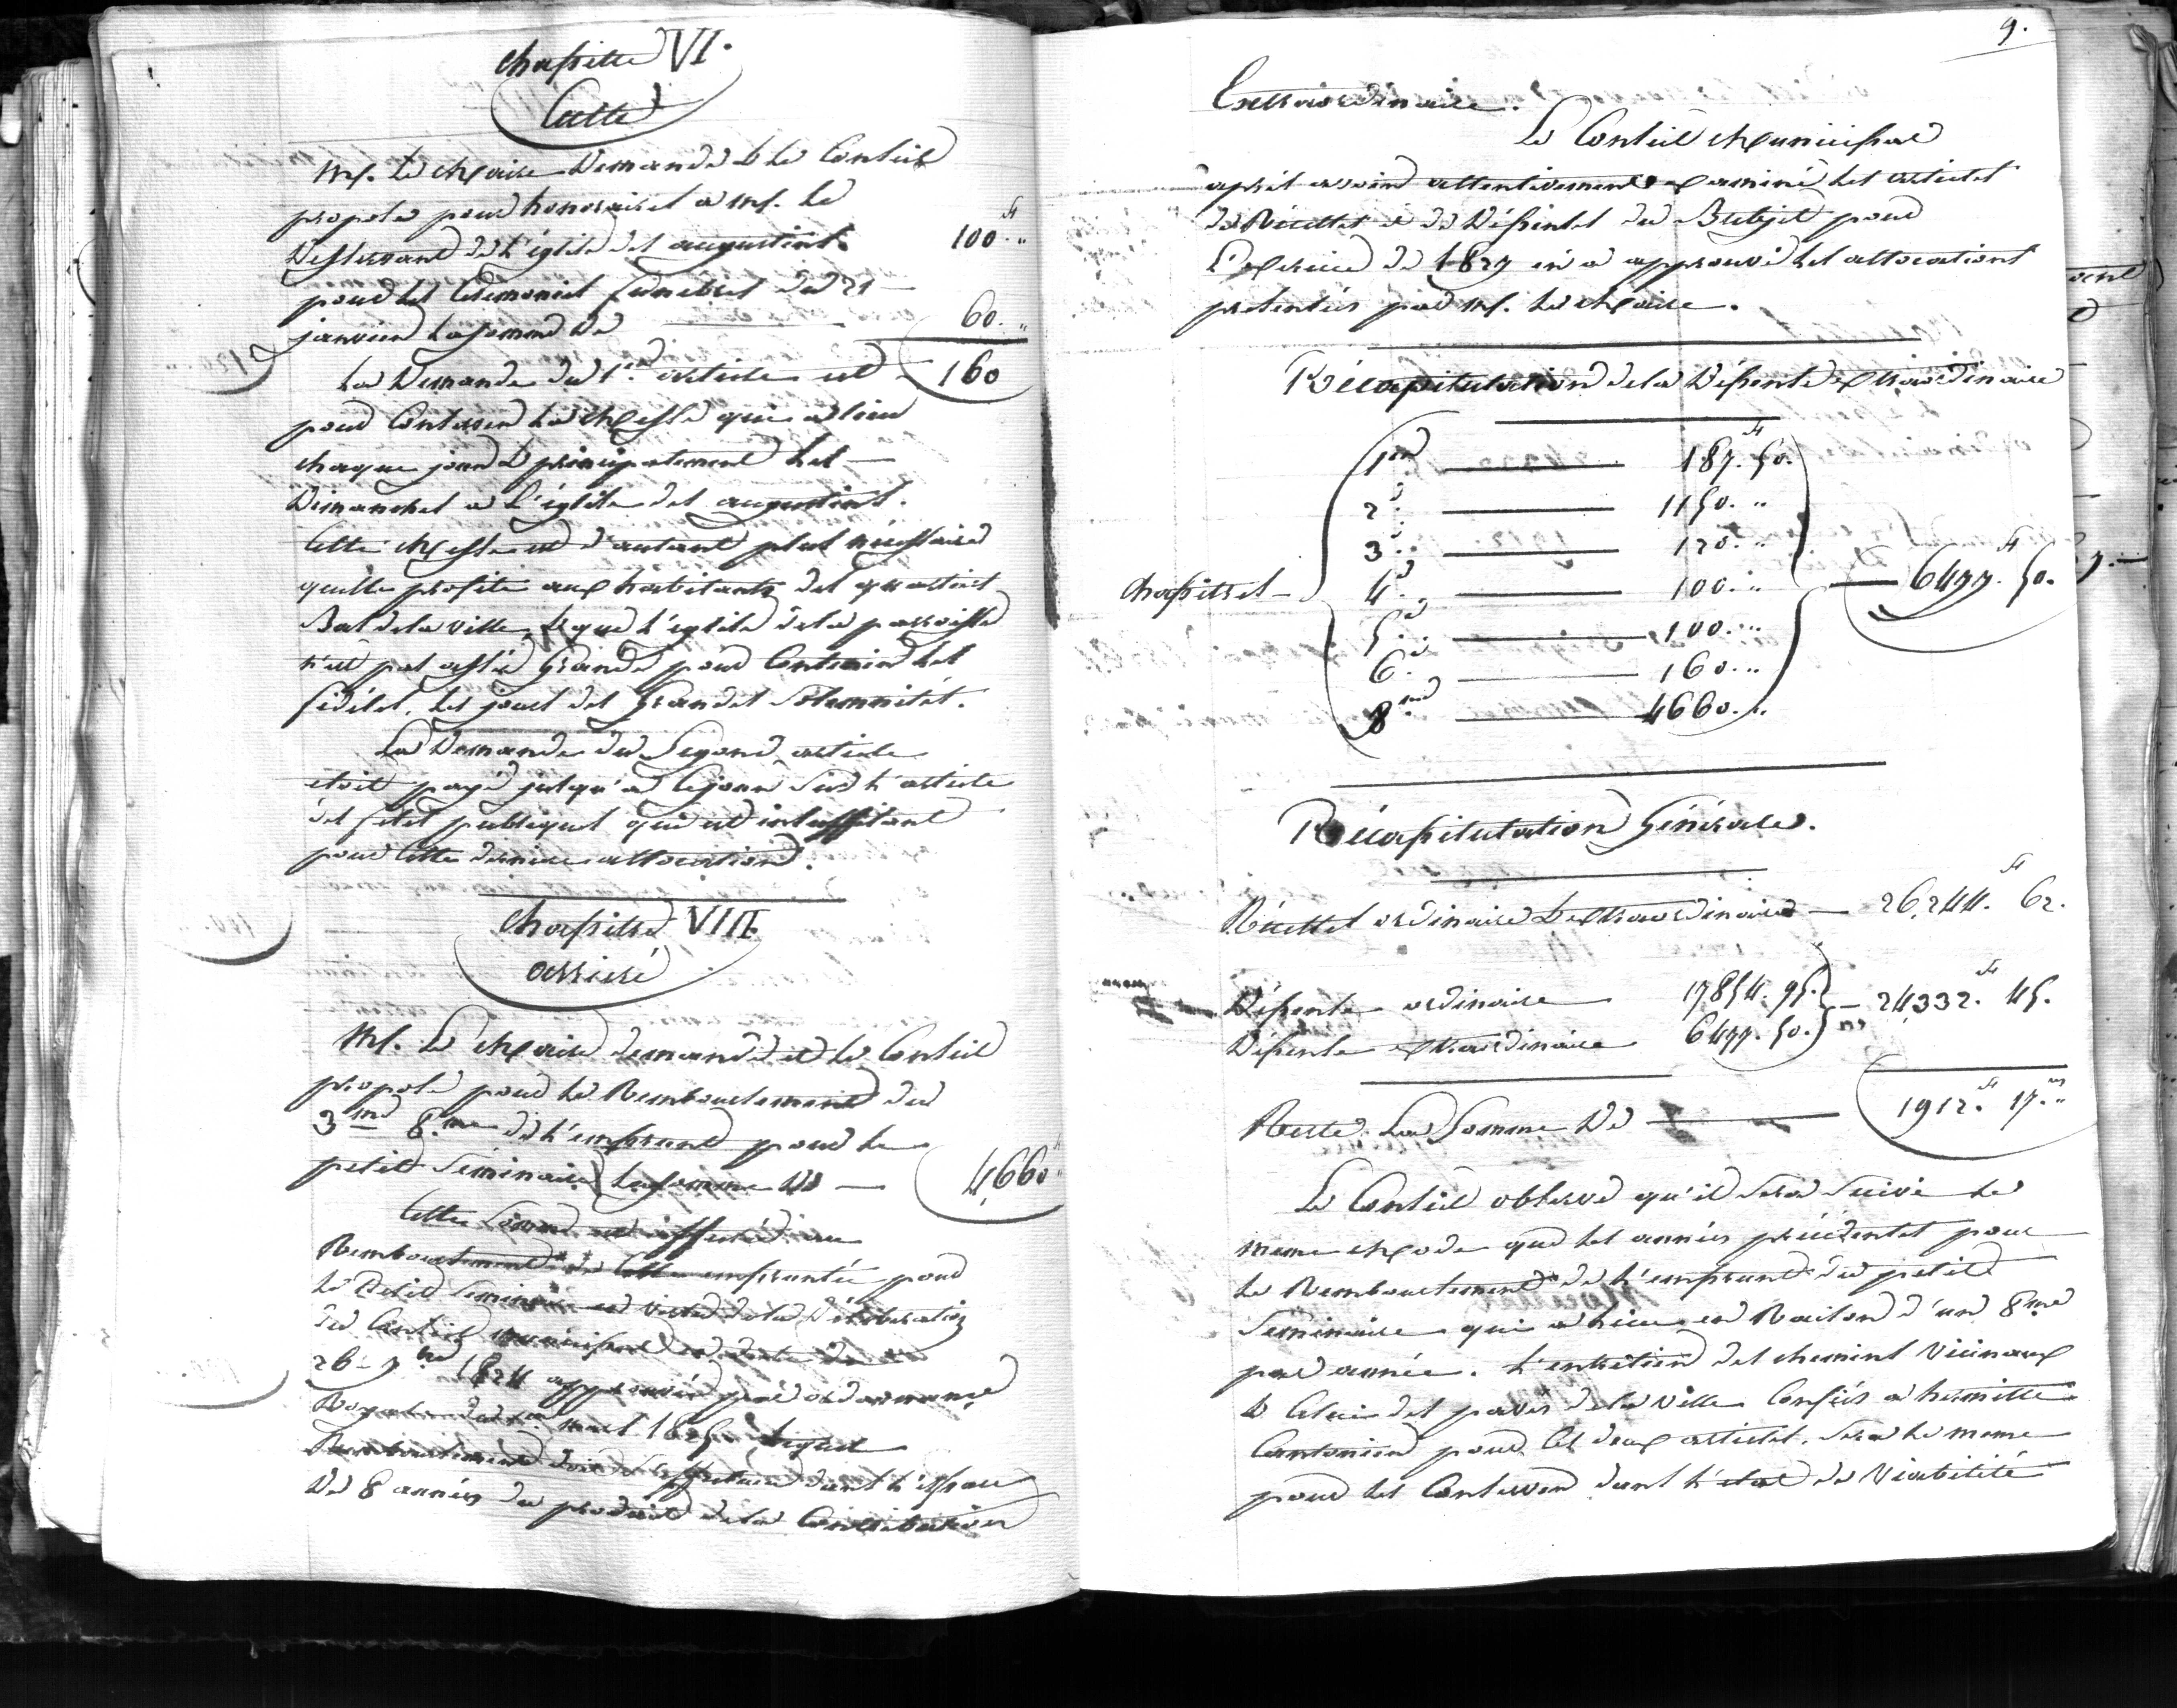 Chapitre VI.
Culte
Mr. Le Maire Demande & le Conseil
propose pour honoraires a Mr. le
Desservant de l'église des augustins 100 fr "
pour les Cérémonies funebres du 21
janvier la somme de 60. "
La Demande du 1er. article est 160
pour Conserver la Messe qui a lieu
chaque jour & principalement les
Dimanches a l'église des augustins.
Cette Messe est d'autant plus nécessaire
quelle profite aux habitants des quartiers
Bas de la ville, & que l'église de la paroisse
n'est pas assée Grande pour Contenir les
fidèles, les jours des Grandes Solemnités.
La Demande du Segond article
etoit payé jusqu'a Cejour sur l'article
des fetes publiques qui est insuffisant
pour Cette derniere allocation.
Chapitre VIII.
arriéré
Mr. Le Maire demande et le Conseil
propose pour le Remboursement du
3me 8.me de l'emprunt pour le
petit Séminaire la somme de 4,660 "
Cette Somme est affectée au
Remboursement de Celle empruntée pour
le Petit Seminaire en vertu de la Déliberation
du Conseil municipal en date du
26 - 9bre 1824 approuvée par ordonnance
Royale du mars 1825 lequel
Remboursement doit s'effectuer dans l'espace
De 8 années du produit de la Contribution
9.
Extraordinaire.
Le Conseil Municipal
après avoir attentivement examiné les articles
de Récettes et de Dépenses du Budjet pour
L'exercice de 1827 en a approuvé les allocations
présentées par Mr. le Maire.
Récapitulation de la Dépense extraordinaire
1er 187 fr. 50.
2e. 1150. "
3e. 120. "
Chapitres 4e. 100. " 6477 fr. 50.
5e. 100. "
6e. 160. "
8me 4660. "
Récapitulation Générale.
Récettes ordinaires & extraordinaires 26,244 fr. 62.
Dépense ordinaire 17854. 95. 24332 fr. 45.
Dépense extraordinaire 6477. 50.
Reste La Somme De 1912 fr. 17. "
Le Conseil observe qu'il sera Suivi le
meme Mode que les années précédentes pour
le Remboursement de l'emprunt du petit
Seminaire qui a lieu en Raison d'un 8me
par année. L'entretien des chemins Vicinaux
& Celui des pavés de la ville Confiés a hermitte
Cantonier pour Ces deux articles, sera le meme
pour les Conserver dans l'etat de Viabilité